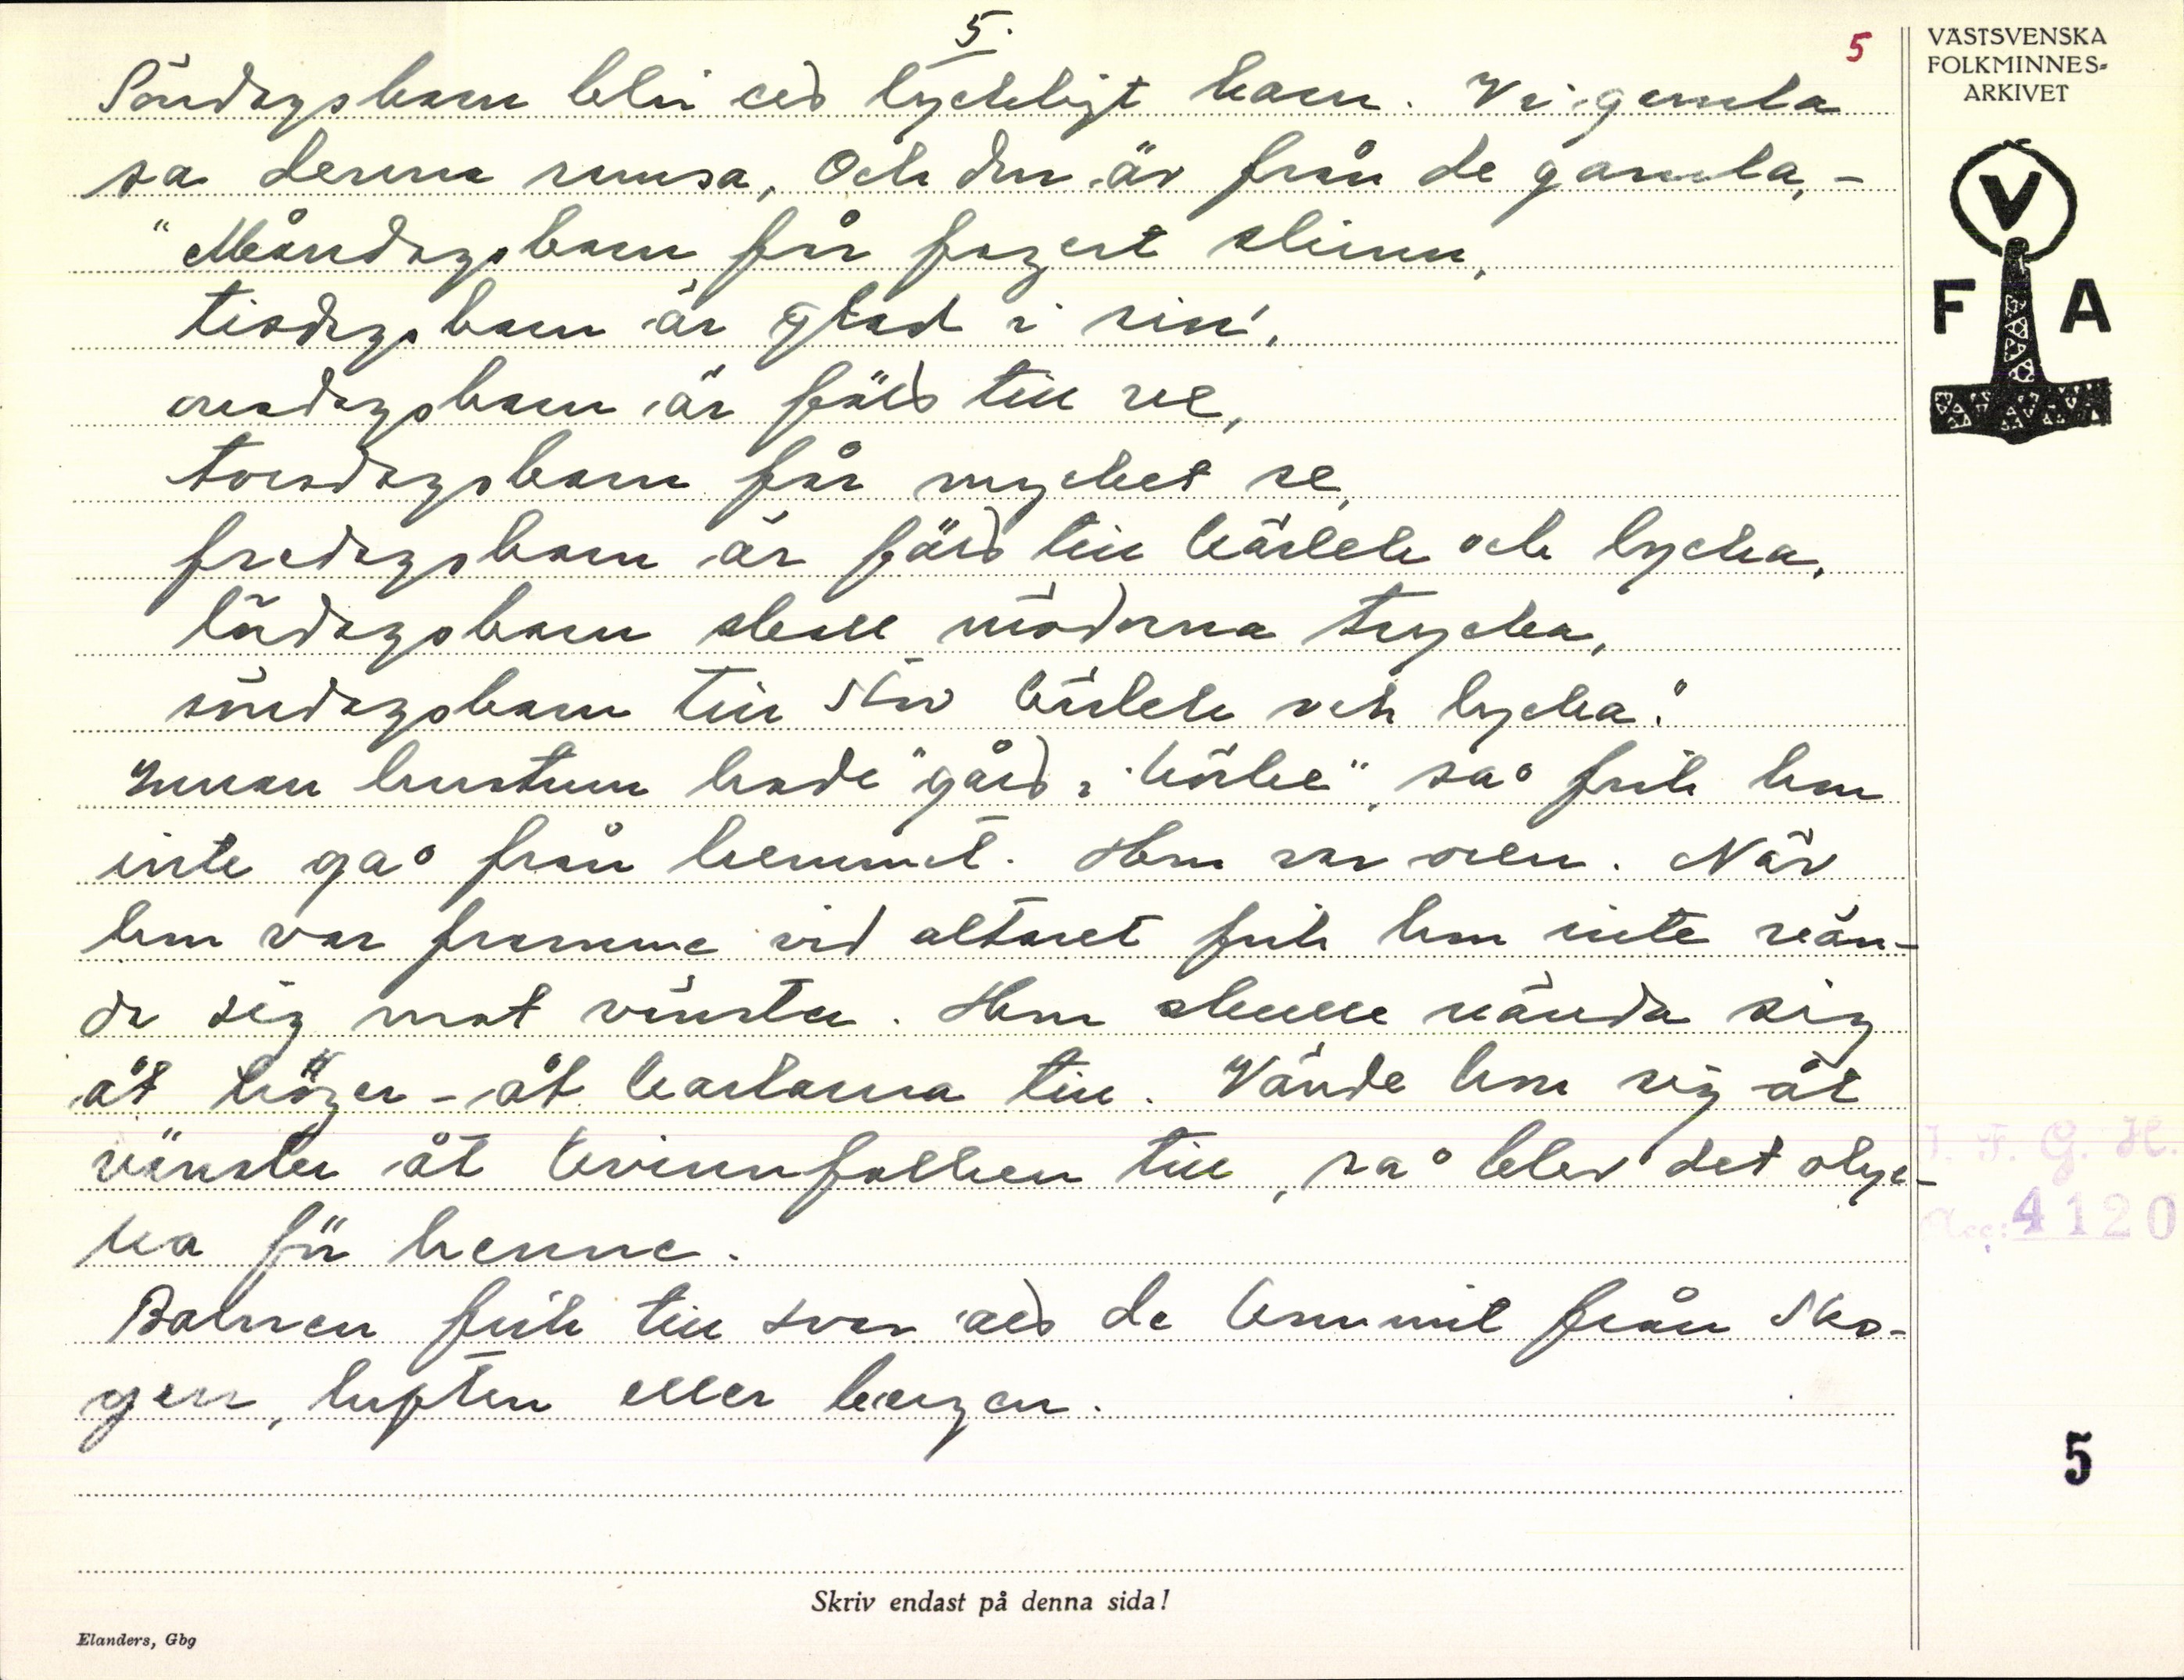 5.
5
VÄSTSVENSKA
FOLKMINNES-
ARKIVET
V
F A
Söndagsbarn bli ett lyckligt barn. Vi gamla
sa denna ramsa, Och den är från de gamla, -
"Måndagsbarn får fagert skinn,
tisdagsbarn är glad i sin',
onsdagsbarn är född till ve,
torsdagsbarn får mycket se,
fredagsbarn är född till kärlek och lycka,
lördagsbarn skall möderna trycka,
söndagsbarn till stor kärlek och lycka."
Innan hustrun hade "gått i körke", så fick hon
inte gå från hemmet. Hon var oren. När
hon var framme vid altaret fick hon inte vän-
da sig mot vänster. Hon skulle vända sig
åt höger - åt karlarna till. Vände hon sig åt
vänster åt kvinnfolken till, så blev det olyc-
ka för henne.
Barnen fick till svar att de kommit från sko-
gen, luften eller bergen.
I. F. G. H.
Acc: 4120
5
Skriv endast på denna sida!
Elanders, Gbg